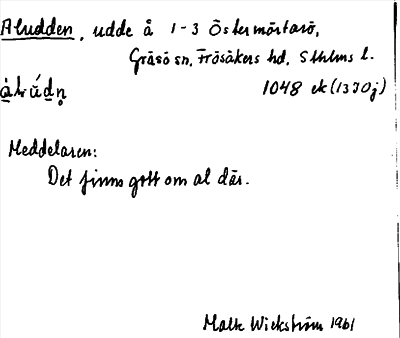 Aludden, udde å 1-3 Östermörtarö,
Gräsö sn, Frösåkers hd, Sthlms l.
1048 ek (1330j)
Meddelaren:
Det finns gott om al där.
Matts Wickström 1961